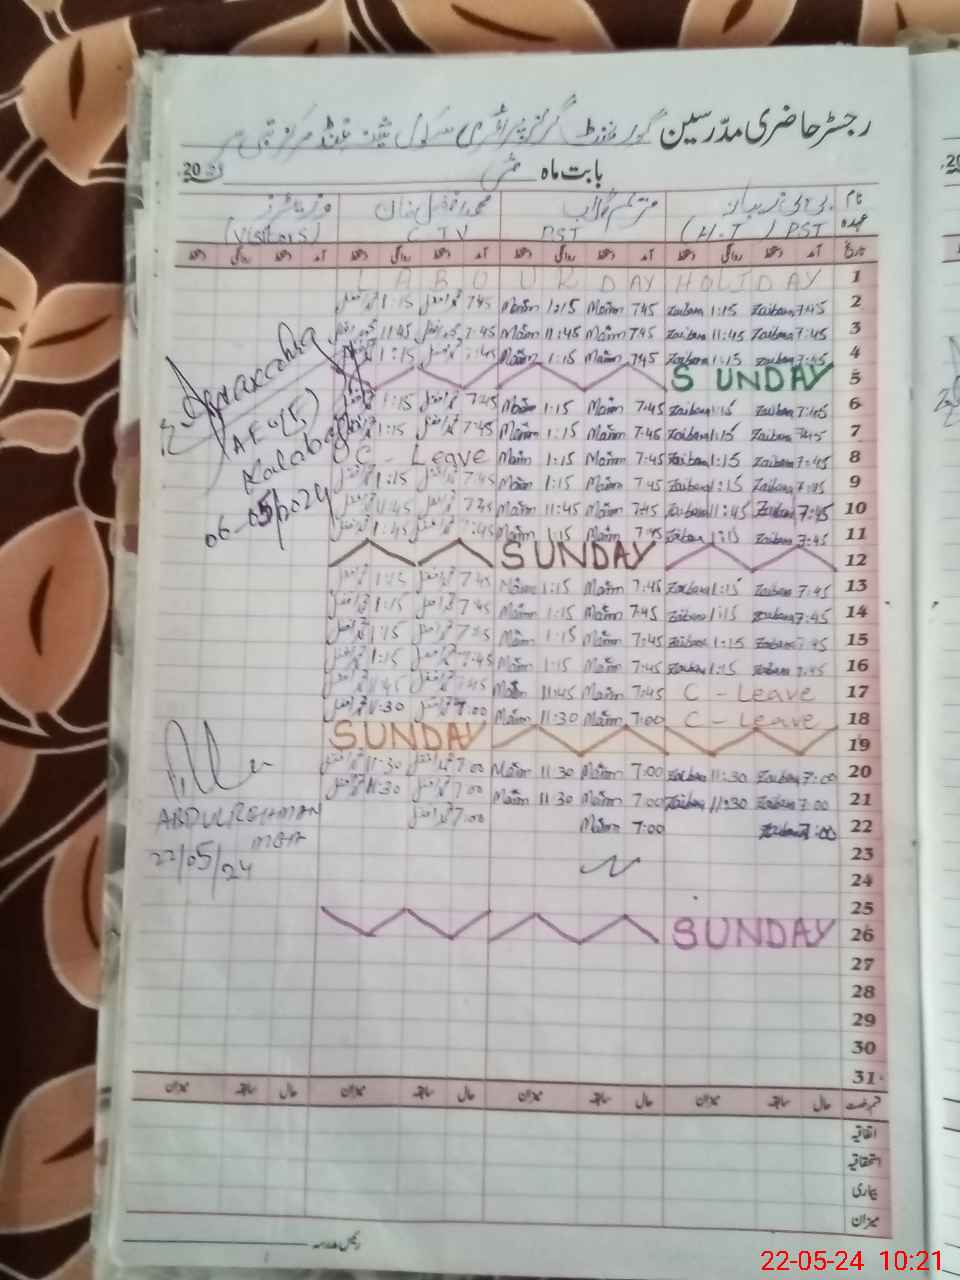 رجسٹر حاضری مدّرسین گورنمنٹ گرلز پرائمری سکول
بابت ماہ مئی 20
نام بی بی زیبان محمد افضل خان وزیٹرز
عہدہ (H.T) PST PST CTV (Visitors)
تاریخ آمد دستخط روانگی دستخط آمد دستخط روانگی دستخط آمد دستخط روانگی دستخط آمد دستخط روانگی دستخط
1 LABOUR DAY HOLIDAY
2 7:45 Zaiban 1:15 Zaiban 7:45 Maim 1:15 Maim 7:45 محمد افضل 1:15 محمد افضل
3 7:45 Zaiban 11:45 Zaiban 7:45 Maim 11:45 Maim 7:45 محمد افضل 11:45 محمد افضل
4 7:45 Zaiban 1:15 Zaiban 745 Maim 1:15 Maim 7:45 محمد افضل 1:15 محمد افضل
5 SUNDAY
6 7:45 Zaiban 1:15 Zaiban 7:45 Maim 1:15 Maim 7:45 محمد افضل 1:15 محمد افضل
7 7:45 Zaiban 1:15 Zaiban 7:45 Maim 1:15 Maim 7:45 محمد افضل 1:15 محمد افضل
8 7:45 Zaiban 1:15 Zaiban 7:45 Maim 1:15 Maim C - Leave
9 7:45 Zaiban 1:15 Zaiban 7:45 Maim 1:15 Maim 7:45 محمد افضل 1:15 محمد افضل
10 7:45 Zaiban 11:45 Zaiban 7:45 Maim 11:45 Maim 7:45 محمد افضل 11:45 محمد افضل
11 7:45 Zaiban 1:15 Zaiban 7:45 Maim 1:15 Maim 7:45 محمد افضل 1:45 محمد افضل
12 SUNDAY
13 7:45 Zaiban 1:15 Zaiban 7:45 Maim 1:15 Maim 7:45 محمد افضل 1:15 محمد افضل
14 7:45 Zaiban 1:15 Zaiban 7:45 Maim 1:15 Maim 7:45 محمد افضل 1:15 محمد افضل
15 7:45 Zaiban 1:15 Zaiban 7:45 Maim 1:15 Maim 7:45 محمد افضل 1:15 محمد افضل
16 7:45 Zaiban 1:15 Zaiban 7:45 Maim 1:15 Maim 7:45 محمد افضل 1:15 محمد افضل
17 C - Leave 7:45 Maim 11:45 Maim 7:45 محمد افضل 11:45 محمد افضل
18 C - Leave 7:00 Maim 11:30 Maim 7:00 محمد افضل 11:30 محمد افضل
19 SUNDAY
20 7:00 Zaiban 11:30 Zaiban 7:00 Maim 11:30 Maim 7:00 محمد افضل 11:30 محمد افضل
21 7:00 Zaiban 11:30 Zaiban 7:00 Maim 11:30 Maim 7:00 محمد افضل 11:30 محمد افضل
22 7:00 Zaiban 7:00 Maim 7:00 محمد افضل
23
24
25
26 SUNDAY
27
28
29
30
31
Kalabagh
06-05-2024
ABDUL REHMAN
MEA
22/05/24
قسم رخصت حال سابقہ میزان حال سابقہ میزان حال سابقہ میزان حال سابقہ میزان
اتفاقیہ
استحقاقیہ
بیماری
میزان
رئیس مدرسہ
22-05-24 10:21